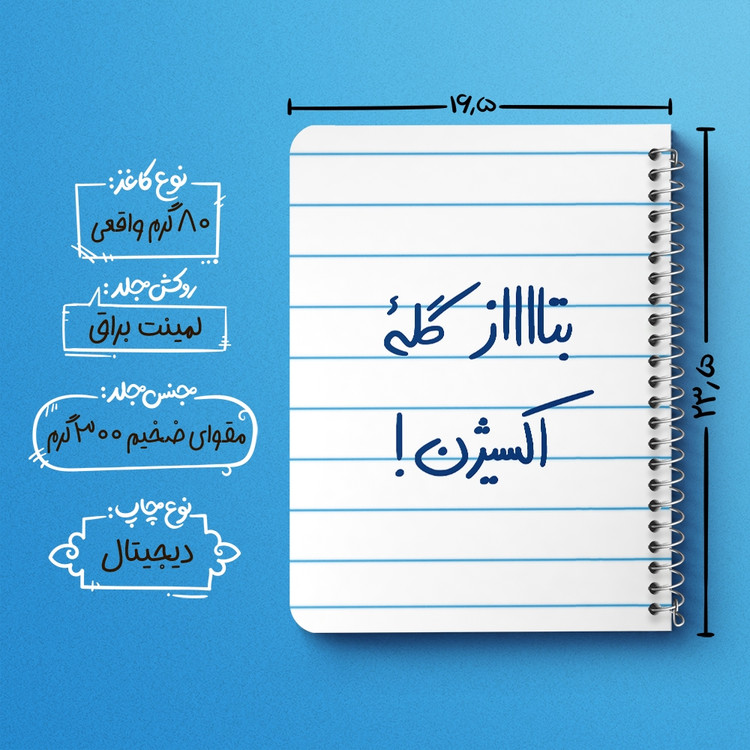 ۱۶٫۵
نوع کاغذ:
۸۰ گرم واقعی
روکش مجلد:
لمینت براق
مجنس مجلد:
مقوای ضخیم ۳۰۰ گرم
نوع چاپ:
دیجیتال
بتاااااز گلهٔ
اکسیژن!
۲۳٫۵